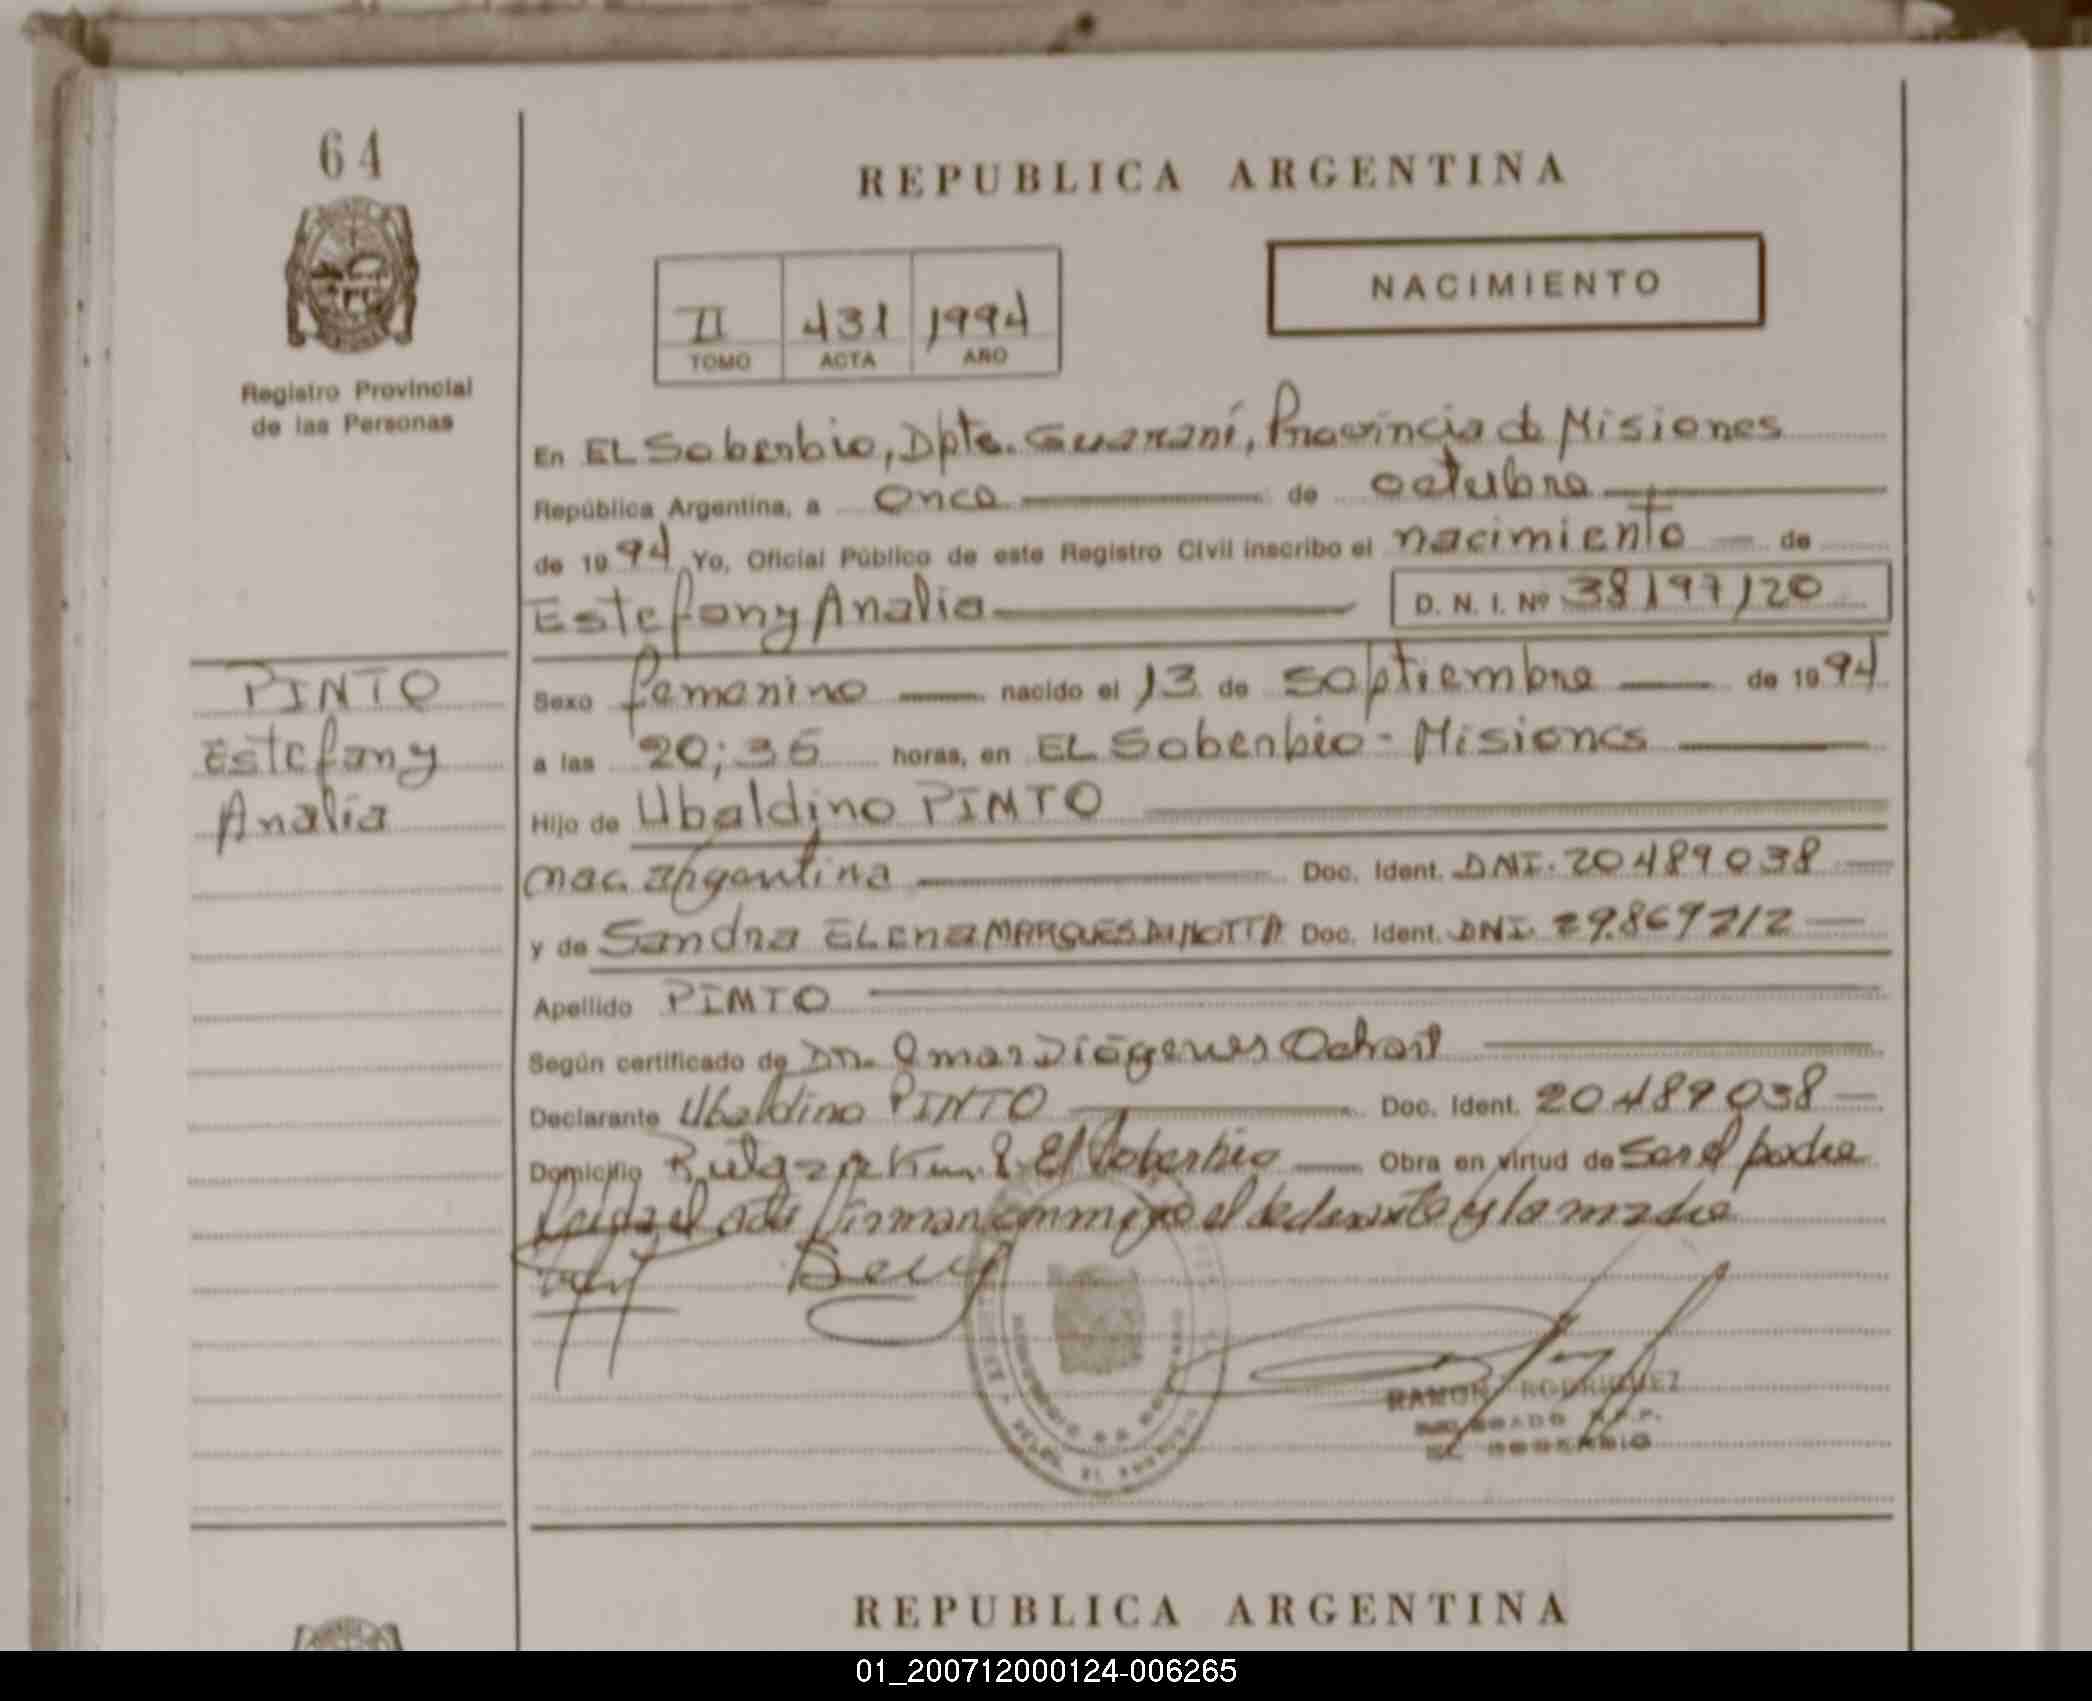 64
Registro Provincial
de las Personas
REPUBLICA ARGENTINA
NACIMIENTO
II 431 1994
TOMO ACTA AÑO
En EL Soberbio, Dpto. Guaraní, Provincia de Misiones
República Argentina, a once de octubre
de 1994 Yo, Oficial Público de este Registro Civil inscribo el nacimiento de
Estefany Analia D. N. I. Nº 38197120
PINTO
Estefany
Analia
Sexo femenino nacido el 13 de septiembre de 1994
a las 20:35 horas, en EL Soberbio - Misiones
Hijo de Ubaldino PINTO
nac. argentina Doc. Ident. DNI. 20489038
y de Sandra ELena MARQUES DA MOTTA Doc. Ident. DNI. 29.869212
Apellido PINTO
Según certificado de Dr. Omar Diógenes
Declarante Ubaldino PINTO Doc. Ident. 20489038
Domicilio Km. 8 El Soberbio Obra en virtud de Ser el padre
Leida el acta firman conmigo el declarante y la madre
RAMON RODRIGUEZ
EL SOBERBIO
REPUBLICA ARGENTINA
01_200712000124-006265